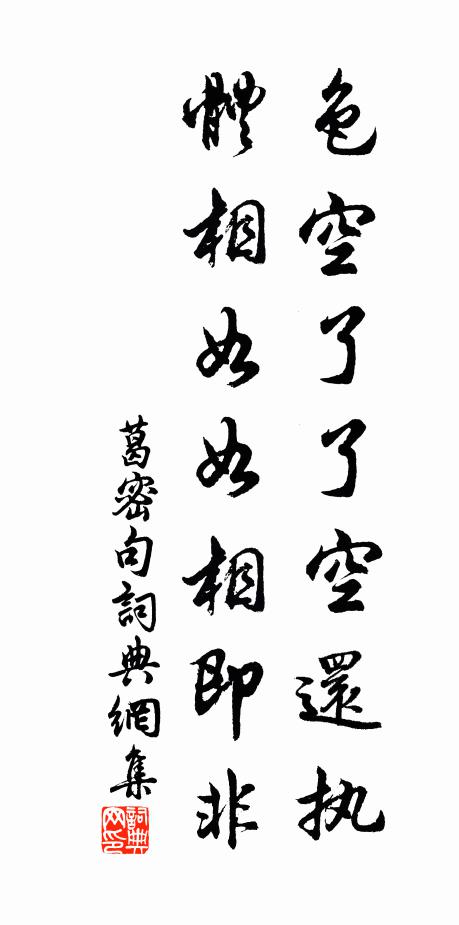 色空了了空還执
體相如如相即非
葛密句詞典網集
詞典网印